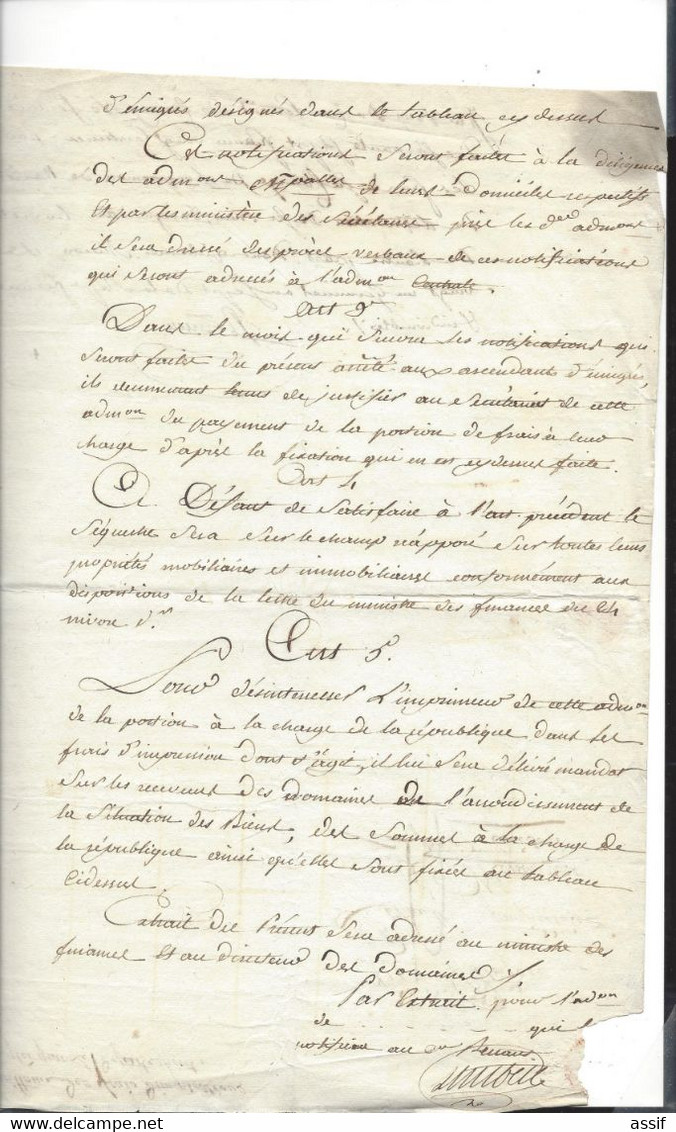 d'émigrés désignés dans le tableau cydessus
Ces notifications seront faites à la diligence
des admons mpalles de leurs domiciles respectifs
et par les ministère des Sécretaires près les d.es admons
il sera dressé des procès verbaux de ces notifications
qui seront adressés à l'admon Centrale.
Art 3e
Dans le mois qui suivra les notifications qui
seront faites du présent arrêté aux ascendants d'émigrés,
ils devront de justifier au secrétariat de cette
admon du payement de la portion de frais à leur
charge d'après la fixation qui en est cydessus faite.
Art 4
A Défaut de Satisfaire à l'art précédent le
Séquestre sera sur le champ rapporé sur toutes leurs
propriétés mobiliaires et immobiliaires conformément aux
dispositions de la lettre du ministre des finances du 24
nivose d.er
Art 5.
Pour désintéresser l'imprimeur de cette admon
de la portion à la charge de la république dans les
frais d'impression dont s'agit, il lui sera délivré mandat
sur les receveurs des domaines de l'arrondissement de
la Situation des Biens, des sommes à la charge de
la république ainsi qu'elles sont fixées au tableau
Cidessus.
Extrait du Présent sera adressé au ministre des
finances et au directeur des domaines
Par Extrait pour l'admon
de - - - - - qui
notifiera au cen
assif